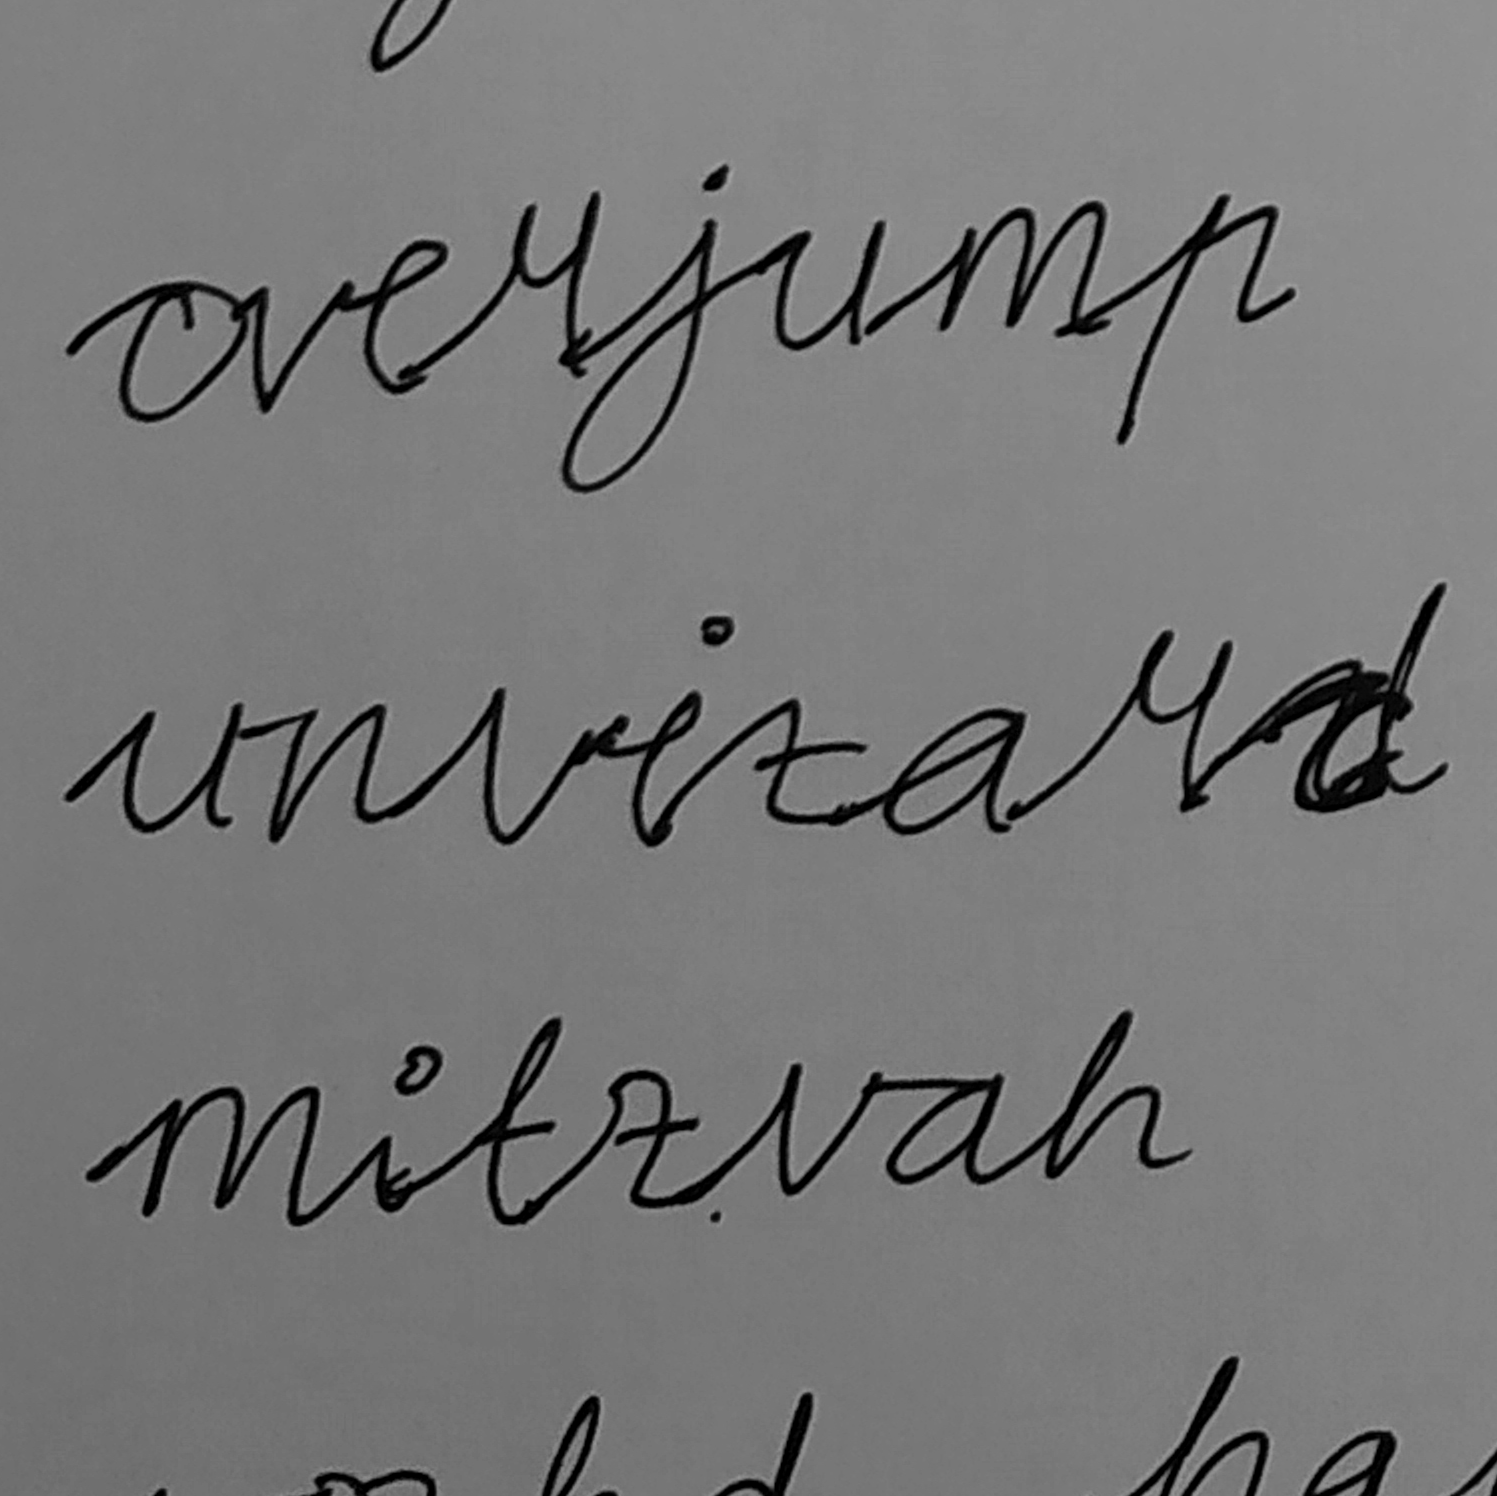 overjump
unvizard
mitzvah